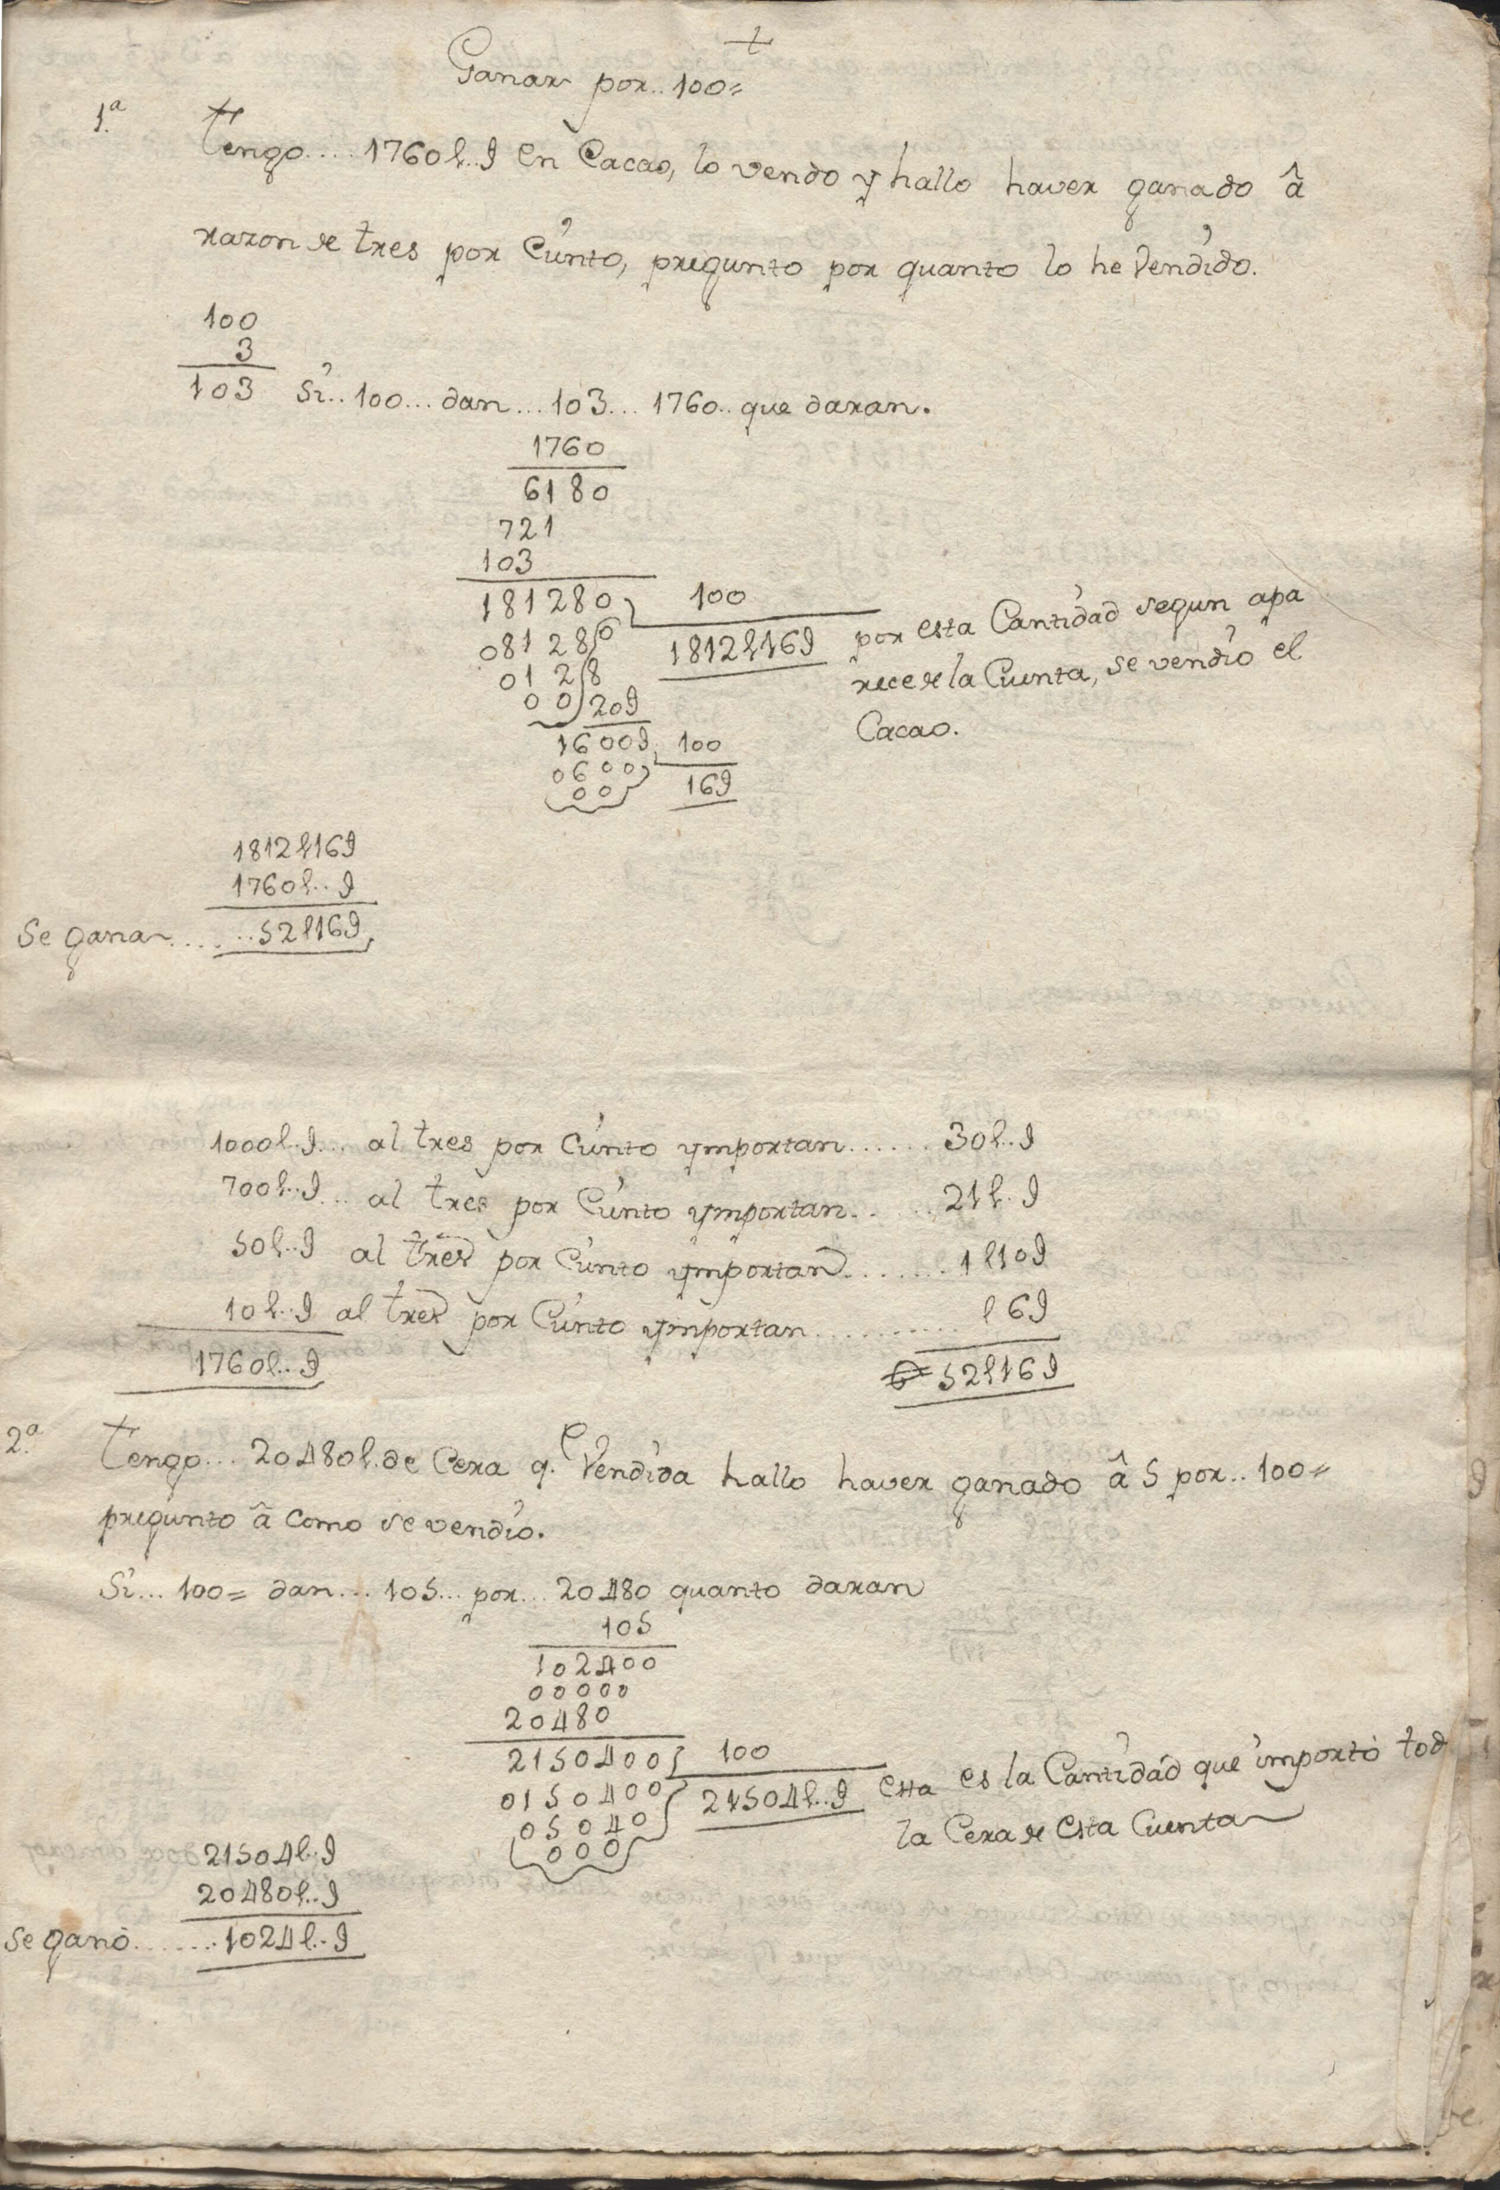 +
Ganar por..100=
1ª Tengo....1760l..9 En Cacao, lo vendo y hallo haver ganado â
razon de tres por Ciento, pregunto por quanto lo he Vendido.
100
3
103 Si..100...dan...103...1760..que daran.
1760
6180
721
103
181280 100
081280 1812l169 por esta Cantidad segun apa
0128 rece de la Cuenta, se vendio el
00 209 Cacao.
16009 100
0600 169
00
1812l169
1760l..9
Se gana.......52l169
1000l..9... al tres por Ciento ymportan......30l..9
700l..9... al tres por Ciento ymportan......21l..9
50l..9 al tres por Ciento ymportan........1l109
10l..9 al tres por Ciento ymportan............l69
1760l..9 52l169
2ª Tengo...20480l.de Cera q.e Vendida hallo haver ganado â 5 por..100=
pregunto â como se vendio.
Si...100=dan...105...por...20480 quanto daran
105
102400
00000
20480
2150400 100
0150400 21504l..9 Esta es la Cantidad que importó tod
05040 la Cera de Esta Cuenta
000
21504l..9
20480l..9
Se ganó.......1024l..9